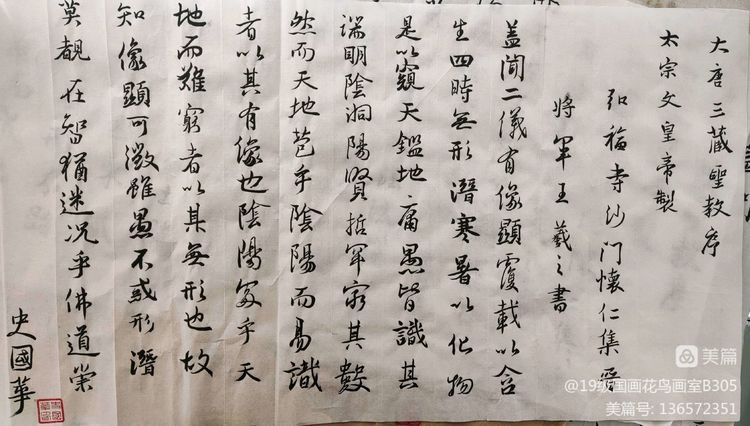 大唐三藏聖教序
太宗文皇帝製
弘福寺沙門懷仁集晉
將軍王羲之書
蓋聞二儀有像顯覆載以含
生四時無形潛寒暑以化物
是以窺天鑑地庸愚皆識其
端明陰洞陽賢哲罕窮其數
然而天地苞乎陰陽而易識
者以其有像也陰陽處乎天
地而難窮者以其無形也故
知像顯可徵雖愚不惑形潛
莫覩在智猶迷况乎佛道崇
史國華
美篇
@19级国画花鸟画室B305
美篇号: 136572351